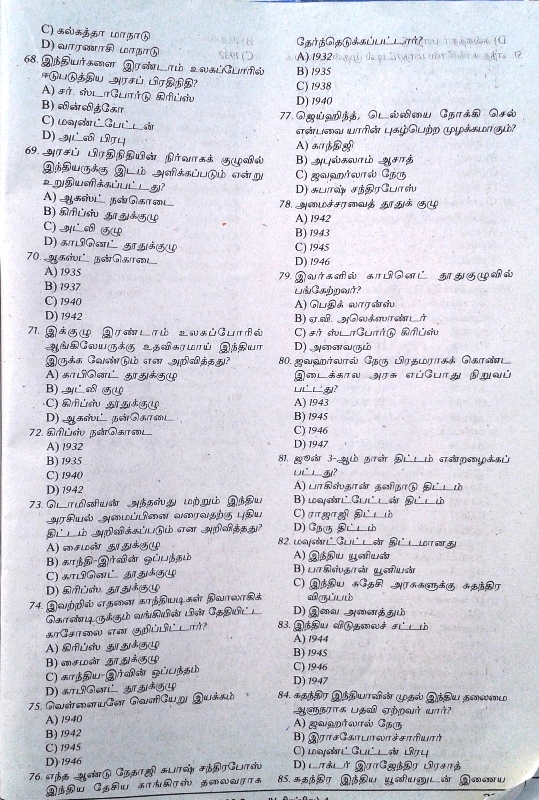 C) கல்கத்தா மாநாடு
D) வாரணாசி மாநாடு
68. இந்தியர்களை இரண்டாம் உலகப்போரில்
ஈடுபடுத்திய அரசப் பிரதிநிதி?
A) சர். ஸ்டாபோர்டு கிரிப்ஸ்
B) லின்லித்கோ
C) மவுண்ட்பேட்டன்
D) அட்லி பிரபு
69. அரசப் பிரதிநிதியின் நிர்வாகக் குழுவில்
இந்தியருக்கு இடம் அளிக்கப்படும் என்று
உறுதியளிக்கப்பட்டது?
A) ஆகஸ்ட் நன்கொடை
B) கிரிப்ஸ் தூதுக்குழு
C) அட்லி குழு
D) காபினெட் தூதுக்குழு
70. ஆகஸ்ட் நன்கொடை
A) 1935
B) 1937
C) 1940
D) 1942
71. இக்குழு இரண்டாம் உலகப்போரில்
ஆங்கிலேயருக்கு உதவிகரமாய் இந்தியா
இருக்க வேண்டும் என அறிவித்தது?
A) காபினெட் தூதுக்குழு
B) அட்லி குழு
C) கிரிப்ஸ் தூதுக்குழு
D) ஆகஸ்ட் நன்கொடை
72. கிரிப்ஸ் நன்கொடை
A) 1932
B) 1935
C) 1940
D) 1942
73. டொமினியன் அந்தஸ்து மற்றும் இந்திய
அரசியல் அமைப்பினை வரைவதற்கு புதிய
திட்டம் அறிவிக்கப்படும் என அறிவித்தது?
A) சைமன் தூதுக்குழு
B) காந்தி-இர்வின் ஒப்பந்தம்
C) காபினெட் தூதுக்குழு
D) கிரிப்ஸ் தூதுக்குழு
74. இவற்றில் எதனை காந்தியடிகள் திவாலாகிக்
கொண்டிருக்கும் வங்கியின் பின் தேதியிட்ட
காசோலை என குறிப்பிட்டார்?
A) கிரிப்ஸ் தூதுக்குழு
B) சைமன் தூதுக்குழு
C) காந்திய-இர்வின் ஒப்பந்தம்
D) காபினெட் தூதுக்குழு
75. வெள்ளையனே வெளியேறு இயக்கம்
A) 1940
B) 1942
C) 1945
D) 1946
76. எந்த ஆண்டு நேதாஜி சுபாஷ் சந்திரபோஸ்
இந்திய தேசிய காங்கிரஸ் தலைவராக
தேர்ந்தெடுக்கப்பட்டார்?
A) 1932
B) 1935
C) 1938
D) 1940
77. ஜெய்ஹிந்த், டெல்லியை நோக்கி செல்
என்பவை யாரின் புகழ்பெற்ற முழக்கமாகும்?
A) காந்திஜி
B) அபுல்கலாம் ஆசாத்
C) ஜவஹர்லால் நேரு
D) சுபாஷ் சந்திரபோஸ்
78. அமைச்சரவைத் தூதுக் குழு
A) 1942
B) 1943
C) 1945
D) 1946
79. இவர்களில் காபினெட் தூதுகுழுவில்
பங்கேற்றவர்?
A) பெதிக் லாரன்ஸ்
B) ஏ.வி. அலெக்ஸாண்டர்
C) சர் ஸ்டாபோர்டு கிரிப்ஸ்
D) அனைவரும்
80. ஜவஹர்லால் நேரு பிரதமராகக் கொண்ட
இடைக்கால அரசு எப்போது நிறுவப்
பட்டது?
A) 1943
B) 1945
C) 1946
D) 1947
81. ஜூன் 3-ஆம் நாள் திட்டம் என்றழைக்கப்
பட்டது?
A) பாகிஸ்தான் தனிநாடு திட்டம்
B) மவுண்ட்பேட்டன் திட்டம்
C) ராஜாஜி திட்டம்
D) நேரு திட்டம்
82. மவுண்ட்பேட்டன் திட்டமானது
A) இந்திய யூனியன்
B) பாகிஸ்தான் யூனியன்
C) இந்திய சுதேசி அரசுகளுக்கு சுதந்திர
விருப்பம்
D) இவை அனைத்தும்
83. இந்திய விடுதலைச் சட்டம்
A) 1944
B) 1945
C) 1946
D) 1947
84. சுதந்திர இந்தியாவின் முதல் இந்திய தலைமை
ஆளுநராக பதவி ஏற்றவர் யார்?
A) ஜவஹர்லால் நேரு
B) இராசகோபாலாச்சாரியார்
C) மவுண்ட்பேட்டன் பிரபு
D) டாக்டர் இராஜேந்திர பிரசாத்
85. சுதந்திர இந்திய யூனியனுடன் இணைய